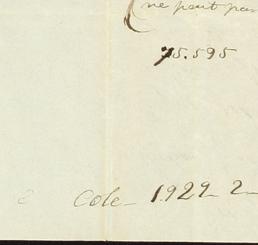 ne peut pas
75.595
Cole - 1929 - 2 -